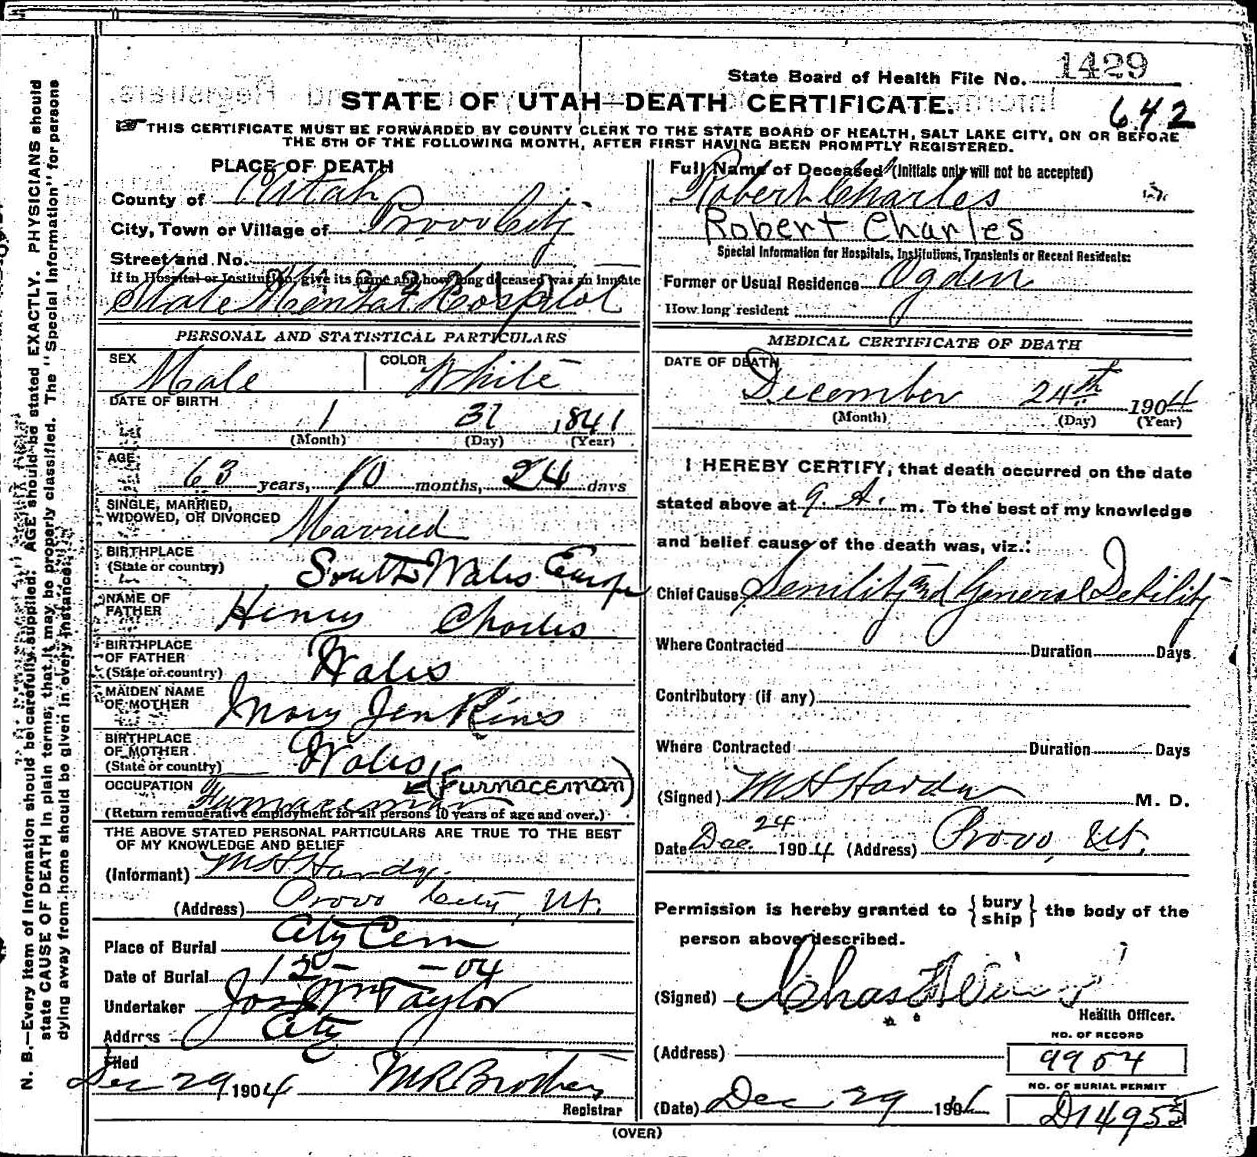 State Board of Health File No. 1429
STATE OF UTAH—DEATH CERTIFICATE.
642
THIS CERTIFICATE MUST BE FORWARDED BY COUNTY CLERK TO THE STATE BOARD OF HEALTH, SALT LAKE CITY, ON OR BEFORE
THE 5TH OF THE FOLLOWING MONTH, AFTER FIRST HAVING BEEN PROMPTLY REGISTERED.
PLACE OF DEATH
County of Utah
City, Town or Village of Provo City
Street and No.
If in Hospital or Institution, give its name and how long deceased was an inmate
State Mental Hospital
PERSONAL AND STATISTICAL PARTICULARS
SEX Male COLOR White
DATE OF BIRTH
1 31 1841
(Month) (Day) (Year)
AGE
63 years, 10 months, 24 days
SINGLE, MARRIED,
WIDOWED, OR DIVORCED Married
BIRTHPLACE
(State or country) South Wales Europe
NAME OF
FATHER Henry Charles
BIRTHPLACE
OF FATHER
(State or country) Wales
MAIDEN NAME
OF MOTHER Mary Jenkins
BIRTHPLACE
OF MOTHER
(State or country) Wales
(Furnaceman)
OCCUPATION Furnaceman
(Return remunerative employment for all persons 10 years of age and over.)
THE ABOVE STATED PERSONAL PARTICULARS ARE TRUE TO THE BEST
OF MY KNOWLEDGE AND BELIEF
(Informant) M H Hardy.
(Address) Provo City, Ut.
Place of Burial City Cem
Date of Burial 12- -04
Undertaker Taylor
Address City
Filed
Dec 29 1904
Registrar
Full Name of Deceased (Initials only will not be accepted)
Robert Charles
Robert Charles
Special Information for Hospitals, Institutions, Transients or Recent Residents:
Former or Usual Residence Ogden
How long resident
MEDICAL CERTIFICATE OF DEATH
DATE OF DEATH
December 24th 1904
(Month) (Day) (Year)
I HEREBY CERTIFY, that death occurred on the date
stated above at 9. A. m. To the best of my knowledge
and belief cause of the death was, viz.:
Chief Cause Senility and General Debility
Where Contracted Duration Days
Contributory (if any)
Where Contracted Duration Days
(Signed) M H Hardy M. D.
Date Dec. 24 1904 (Address) Provo, Ut.
Permission is hereby granted to { bury ship } the body of the
person above described.
(Signed) Chas
Health Officer.
(Address)
NO. OF RECORD
9904
NO. OF BURIAL PERMIT
D14955
(Date) Dec 29 190
(OVER)
N. B.—Every item of information should be carefully supplied. AGE should be stated EXACTLY. PHYSICIANS should
state CAUSE OF DEATH in plain terms, that it may be properly classified. The "Special Information" for persons
dying away from home should be given in every instance.